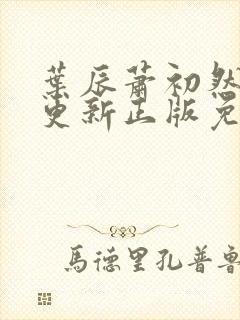 葉辰蕭初然
更新正版免
馬德里孔普魯